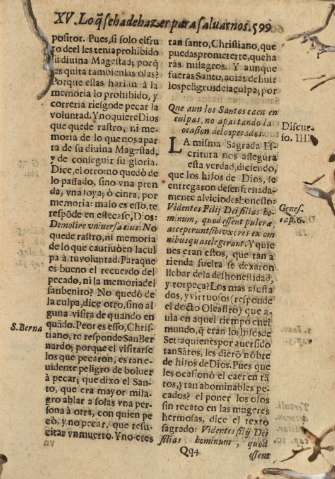 XV. Lo q̃ se ha de hazer para saluarnos. 599
positor. Pues, si solo el fru
to de el les tenia prohibido
su diuina Magestad, porq̃
quita tambien las ojas?
Porque ellas harian a la
memoria lo prohibido, y
correria riesgo de pecar la
voluntad. Y no quiere Dios
que quede rastro, ni me
moria de lo que nos apar
ta de su diuina Magestad,
y de conseguir su gloria.
Dice, el otro no quedò de
lo passado, sino vna pren
da, vna joya, ò cinta, por
memoria: malo es esso, te
respõde en este caso, Dios:
Que
de rastro, ni memoria de
lo que cautiuò en la cul
pa à tu voluntad. Para que
es bueno el recuerdo del
pecado, ni la memoria del
sanbenito? No quedò de
la culpa, dice otro, sino al
guna visita de quando en
quãdo. Peor es esso, Christ
iano, te responde San Ber
nardo, porque el visitar se
los que pecaron, es tan e-
uidente peligro de boluer
à pecar; que dixo el San-
to, que era mayor mila-
gro ablar a solas vna per
sona à otra, con quien pe
cò, y no pecar, que resu-
citar vn muerto. Y no eres
S. Berna
tan santo, Christiano, que
puedas prometerte, que ha
ràs milagros. Y aunque
fueras Santo, auias de huir
los peligros de la culpa; por
Que aun los Santos caen en
culpas, no apartando la
ocasion del operador.
Discur-
so. IIII.
LA misma Sagrada Es
critura nos assegura
esta verdad, diciendo,
que los hijos de Dios, se
entregaron desenfrenada-
mente al vicio desonesto:
Videntes Filij Dei filias ho
minum, quod essent pulcræ,
acceperunt sibi vxores ex om
nibus quas elegerant. Y quie
nes eran estos, que tan a
rienda suelta se dexaron
lleuar de la desonestidad,
y torpeça? Los mas ajusta
dos, y virtuosos (responde
el docto Oleastro) que a-
uia en aquel tiempo en el
mundo, q̃ eran los hijos de
Set: a quienes por auer sido
tan Santos, les diero nõbre
de hijos de Dios. Pues que
les ocasionò el caer en ta
les, y tan abominables pe-
cados? el poner los ojos
sin recato en las mugeres
hermosas, dice el texto
sagrado: Videntes filij Dei
filias hominum, quod
Genes.
cap. 6.
Qq 4
essent